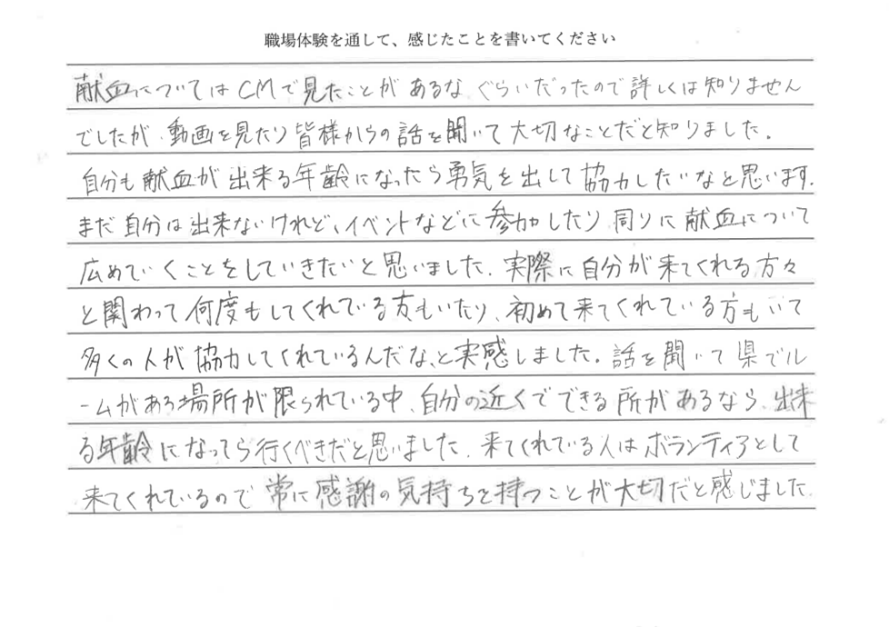 職場体験を通して、感じたことを書いてください
献血についてはCMで見たことがあるな ぐらいだったので詳しくは知りません
でしたが、動画を見たり皆様からの話を聞いて大切なことだと知りました。
自分も献血が出来る年齢になったら勇気を出して協力したいなと思います。
まだ自分は出来ないけれど、イベントなどに参加したり周りに献血について
広めていくことをしていきたいと思いました。実際に自分が来てくれる方々
と関わって何度もしてくれている方もいたり、初めて来てくれている方もいて
多くの人が協力してくれているんだな、と実感しました。話を聞いて県でル
ームがある場所が限られている中、自分の近くでできる所があるなら、出来
る年齢になってら行くべきだと思いました。来てくれている人はボランティアとして
来てくれているので常に感謝の気持ちを持つことが大切だと感じました。